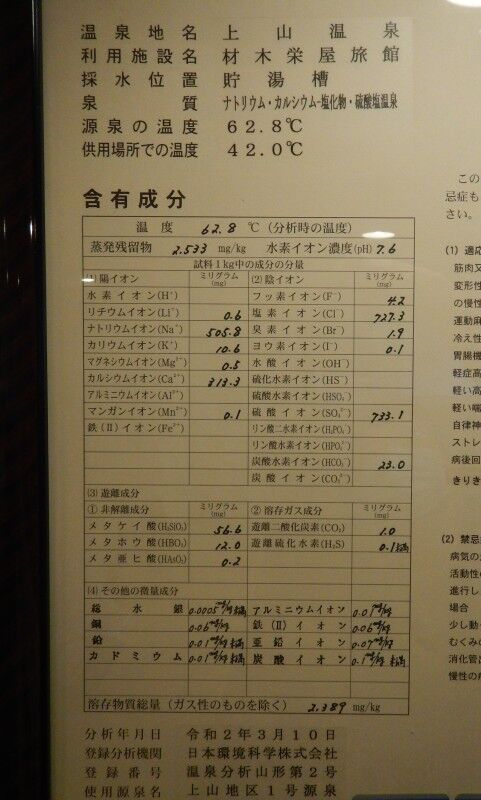 温泉地名 上山温泉
利用施設名 材木栄屋旅館
採水位置 貯湯槽
泉質 ナトリウム・カルシウム−塩化物・硫酸塩温泉
源泉の温度 62.8℃
供用場所での温度 42.0℃
含有成分
温度 62.8 ℃(分析時の温度)
蒸発残留物 2.533 mg/kg 水素イオン濃度(pH) 7.6
試料1kg中の成分の分量
(1)陽イオン ミリグラム(mg) (2)陰イオン ミリグラム(mg)
水素イオン(H⁺) フッ素イオン(F⁻) 4.2
リチウムイオン(Li⁺) 0.6 塩素イオン(Cl⁻) 727.3
ナトリウムイオン(Na⁺) 505.8 臭素イオン(Br⁻) 1.9
カリウムイオン(K⁺) 10.6 ヨウ素イオン(I⁻) 0.1
マグネシウムイオン(Mg²⁺) 0.5 水酸イオン(OH⁻)
カルシウムイオン(Ca²⁺) 313.3 硫化水素イオン(HS⁻)
アルミニウムイオン(Al³⁺) 硫酸水素イオン(HSO₄⁻)
マンガンイオン(Mn²⁺) 0.1 硫酸イオン(SO₄²⁻) 733.1
鉄(Ⅱ)イオン(Fe²⁺) リン酸二水素イオン(H₂PO₄⁻)
リン酸水素イオン(HPO₄²⁻)
炭酸水素イオン(HCO₃⁻) 23.0
炭酸イオン(CO₃²⁻)
(3)遊離成分
①非解離成分 ミリグラム(mg) ②溶存ガス成分 ミリグラム(mg)
メタケイ酸(H₂SiO₃) 56.6 遊離二酸化炭素(CO₂) 1.0
メタホウ酸(HBO₂) 12.0 遊離硫化水素(H₂S) 0.1未満
メタ亜ヒ酸(HAsO₂) 0.2
(4)その他の微量成分
総水銀 0.0005mg/kg未満 アルミニウムイオン 0.01mg/kg
銅 0.06mg/kg 鉄(Ⅱ)イオン 0.06mg/kg
鉛 0.01mg/kg未満 亜鉛イオン 0.07mg/kg
カドミウム 0.01mg/kg未満 炭酸イオン 0.1mg/kg未満
溶存物質総量(ガス性のものを除く) 2.389 mg/kg
分析年月日 令和2年3月10日
登録分析機関 日本環境科学株式会社
登録番号 温泉分析山形第2号
使用源泉名 上山地区1号源泉
この
忌症も
さい。
(1) 適応
筋肉又
変形性
の慢性
運動麻
冷え性
胃腸機
軽症高
軽い高
軽い喘
自律神
ストレ
病後回
きりき
(2) 禁忌
病気の
活動性
進行し
場合
少し動
むくみの
消化管に
慢性の病